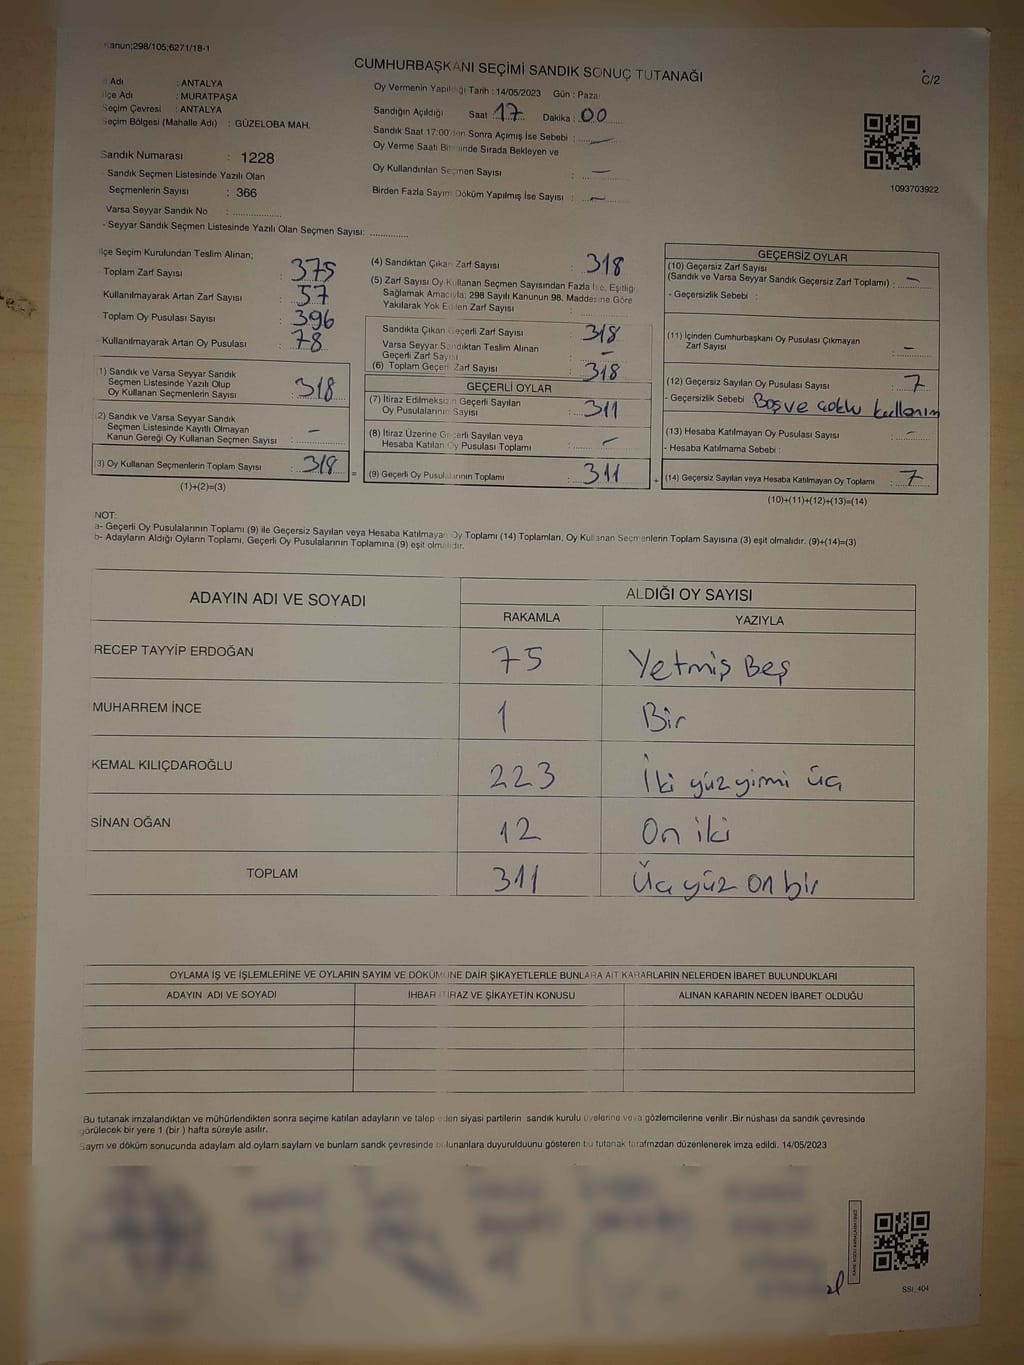 Kanun;298/105;6271/18-1
CUMHURBAŞKANI SEÇİMİ SANDIK SONUÇ TUTANAĞI
C/2
İl Adı : ANTALYA
İlçe Adı : MURATPAŞA
Seçim Çevresi : ANTALYA
Seçim Bölgesi (Mahalle Adı) : GÜZELOBA MAH.
Sandık Numarası : 1228
Sandık Seçmen Listesinde Yazılı Olan
Seçmenlerin Sayısı : 366
Varsa Seyyar Sandık No : ...............
- Seyyar Sandık Seçmen Listesinde Yazılı Olan Seçmen Sayısı: ............
Oy Vermenin Yapıldığı Tarih : 14/05/2023 Gün : Pazar
Sandığın Açıldığı Saat 17 Dakika : 00
Sandık Saat 17:00'den Sonra Açımış İse Sebebi : —
Oy Verme Saati Bitiminde Sırada Bekleyen ve
Oy Kullandırılan Seçmen Sayısı : —
Birden Fazla Sayım Döküm Yapılmış İse Sayısı : —
1093703922
İlçe Seçim Kurulundan Teslim Alınan;
Toplam Zarf Sayısı : 375
Kullanılmayarak Artan Zarf Sayısı : 57
Toplam Oy Pusulası Sayısı : 396
Kullanılmayarak Artan Oy Pusulası : 78
1) Sandık ve Varsa Seyyar Sandık
Seçmen Listesinde Yazılı Olup
Oy Kullanan Seçmenlerin Sayısı : 318
(2) Sandık ve Varsa Seyyar Sandık
Seçmen Listesinde Kayıtlı Olmayan
Kanun Gereği Oy Kullanan Seçmen Sayısı : —
(3) Oy Kullanan Seçmenlerin Toplam Sayısı : 318
(1)+(2)=(3)
(4) Sandıktan Çıkan Zarf Sayısı : 318
(5) Zarf Sayısı Oy Kullanan Seçmen Sayısından Fazla İse, Eşitliği
Sağlamak Amacıyla; 298 Sayılı Kanunun 98. Maddesine Göre
Yakılarak Yok Edilen Zarf Sayısı :
Sandıkta Çıkan Geçerli Zarf Sayısı : 318
Varsa Seyyar Sandıktan Teslim Alınan
Geçerli Zarf Sayısı : —
(6) Toplam Geçerli Zarf Sayısı : 318
GEÇERLİ OYLAR
(7) İtiraz Edilmeksizin Geçerli Sayılan
Oy Pusulalarının Sayısı : 311
(8) İtiraz Üzerine Geçerli Sayılan veya
Hesaba Katılan Oy Pusulası Toplamı : —
= (9) Geçerli Oy Pusularının Toplamı : 311
GEÇERSİZ OYLAR
(10) Geçersiz Zarf Sayısı
(Sandık ve Varsa Seyyar Sandık Geçersiz Zarf Toplamı) : —
- Geçersizlik Sebebi :
(11) İçinden Cumhurbaşkanı Oy Pusulası Çıkmayan
Zarf Sayısı : —
(12) Geçersiz Sayılan Oy Pusulası Sayısı : 7
- Geçersizlik Sebebi Boş ve çoklu kullanım
(13) Hesaba Katılmayan Oy Pusulası Sayısı : —
- Hesaba Katılmama Sebebi :
+ (14) Geçersiz Sayılan veya Hesaba Katılmayan Oy Toplamı : 7
(10)+(11)+(12)+(13)=(14)
NOT:
a- Geçerli Oy Pusulalarının Toplamı (9) ile Geçersiz Sayılan veya Hesaba Katılmayan Oy Toplamı (14) Toplamları, Oy Kullanan Seçmenlerin Toplam Sayısına (3) eşit olmalıdır. (9)+(14)=(3)
b- Adayların Aldığı Oyların Toplamı, Geçerli Oy Pusulalarının Toplamına (9) eşit olmalıdır.
ADAYIN ADI VE SOYADI
ALDIĞI OY SAYISI
RAKAMLA YAZIYLA
RECEP TAYYİP ERDOĞAN 75 Yetmiş Beş
MUHARREM İNCE 1 Bir
KEMAL KILIÇDAROĞLU 223 İki yüz yirmi üç
SİNAN OĞAN 12 On iki
TOPLAM 311 Üç yüz on bir
OYLAMA İŞ VE İŞLEMLERİNE VE OYLARIN SAYIM VE DÖKÜMÜNE DAİR ŞİKAYETLERLE BUNLARA AİT KARARLARIN NELERDEN İBARET BULUNDUKLARI
ADAYIN ADI VE SOYADI İHBAR İTİRAZ VE ŞİKAYETİN KONUSU ALINAN KARARIN NEDEN İBARET OLDUĞU
Bu tutanak imzalandıktan ve mühürlendikten sonra seçime katılan adayların ve talep eden siyasi partilerin sandık kurulu üyelerine veya gözlemcilerine verilir .Bir nüshası da sandık çevresinde
görülecek bir yere 1 (bir ) hafta süreyle asılır.
Saym ve döküm sonucunda adaylam ald oylam saylam ve bunlam sandk çevresinde bulunanlara duyurulduunu gösteren bu tutanak tarafmzdan düzenlenerek imza edildi. 14/05/2023
SSI_404